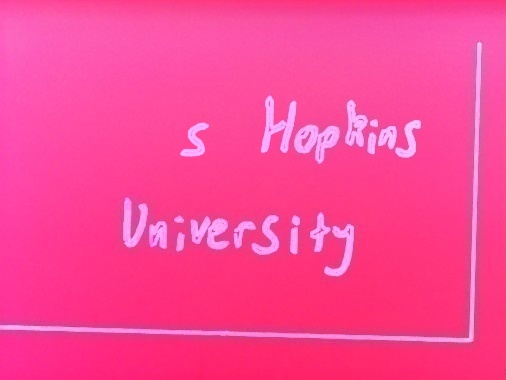 s Hopkins
University